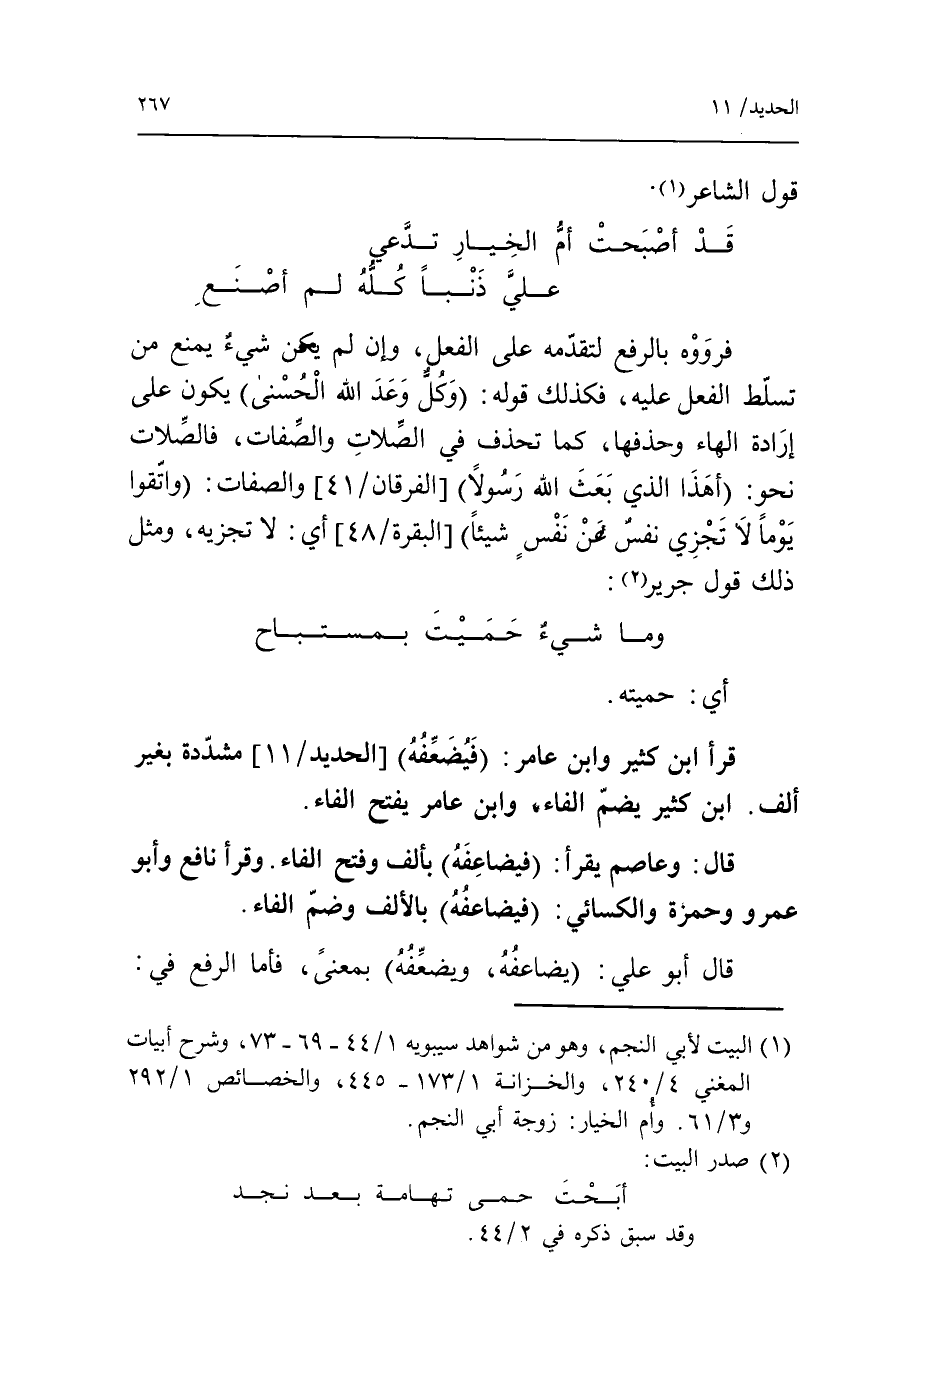 الحديد/ ١١ ٢٦٧
قول الشاعر(١).
قَـــدْ أصْبَحتْ أمُّ الخِيـــارِ تـــدَّعي
علـــيَّ ذَنْـبـــاً كُــلُّهُ لـــم أصْـــنَـــعِ
فروَوْه بالرفع لتقدّمه على الفعل، وإن لم يكن شيءٌ يمنع من
تسلّط الفعل عليه، فكذلك قوله: (وَكُلٌّ وَعَدَ الله الْحُسْنىٰ) يكون على
إرَادة الهاء وحذفها، كما تحذف في الصِّلاتِ والصِّفات، فالصِّلات
نحو: (أهَذَا الذي بَعَثَ الله رَسُولاً) [الفرقان/٤١] والصفات: (واتّقوا
يَوْماً لاَ تَجْزِي نفسٌ عَنْ نَفْسٍ شيئاً) [البقرة/٤٨] أي: لا تجزيه، ومثل
ذلك قول جرير(٢):
ومـــا شـــيءٌ حَـمَـيْـتَ بـمـسـتـبـاح
أي: حميته.
قرأ ابن كثير وابن عامر: (فَيُضَعِّفُهُ) [الحديد/١١] مشدّدة بغير
ألف. ابن كثير يضمّ الفاء، وابن عامر يفتح الفاء.
قال: وعاصم يقرأ: (فيضاعِفَهُ) بألف وفتح الفاء. وقرأ نافع وأبو
عمرو وحمزة والكسائي: (فيضاعفُهُ) بالألف وضمّ الفاء.
قال أبو علي: (يضاعفُهُ، ويضعِّفُهُ) بمعنىً، فأما الرفع في:
(١) البيت لأبي النجم، وهو من شواهد سيبويه ٤٤/١ ـ ٦٩ ـ ٧٣، وشرح أبيات
المغني ٢٤٠/٤، والخـــزانـة ١٧٣/١ ـ ٤٤٥، والخصـــائص ٢٩٢/١
و٦١/٣. وأُم الخيار: زوجة أبي النجم.
(٢) صدر البيت:
أبَـــحْـــتَ حـمـى تـهـامـة بـعـد نـجـد
وقد سبق ذكره في ٤٤/٢.